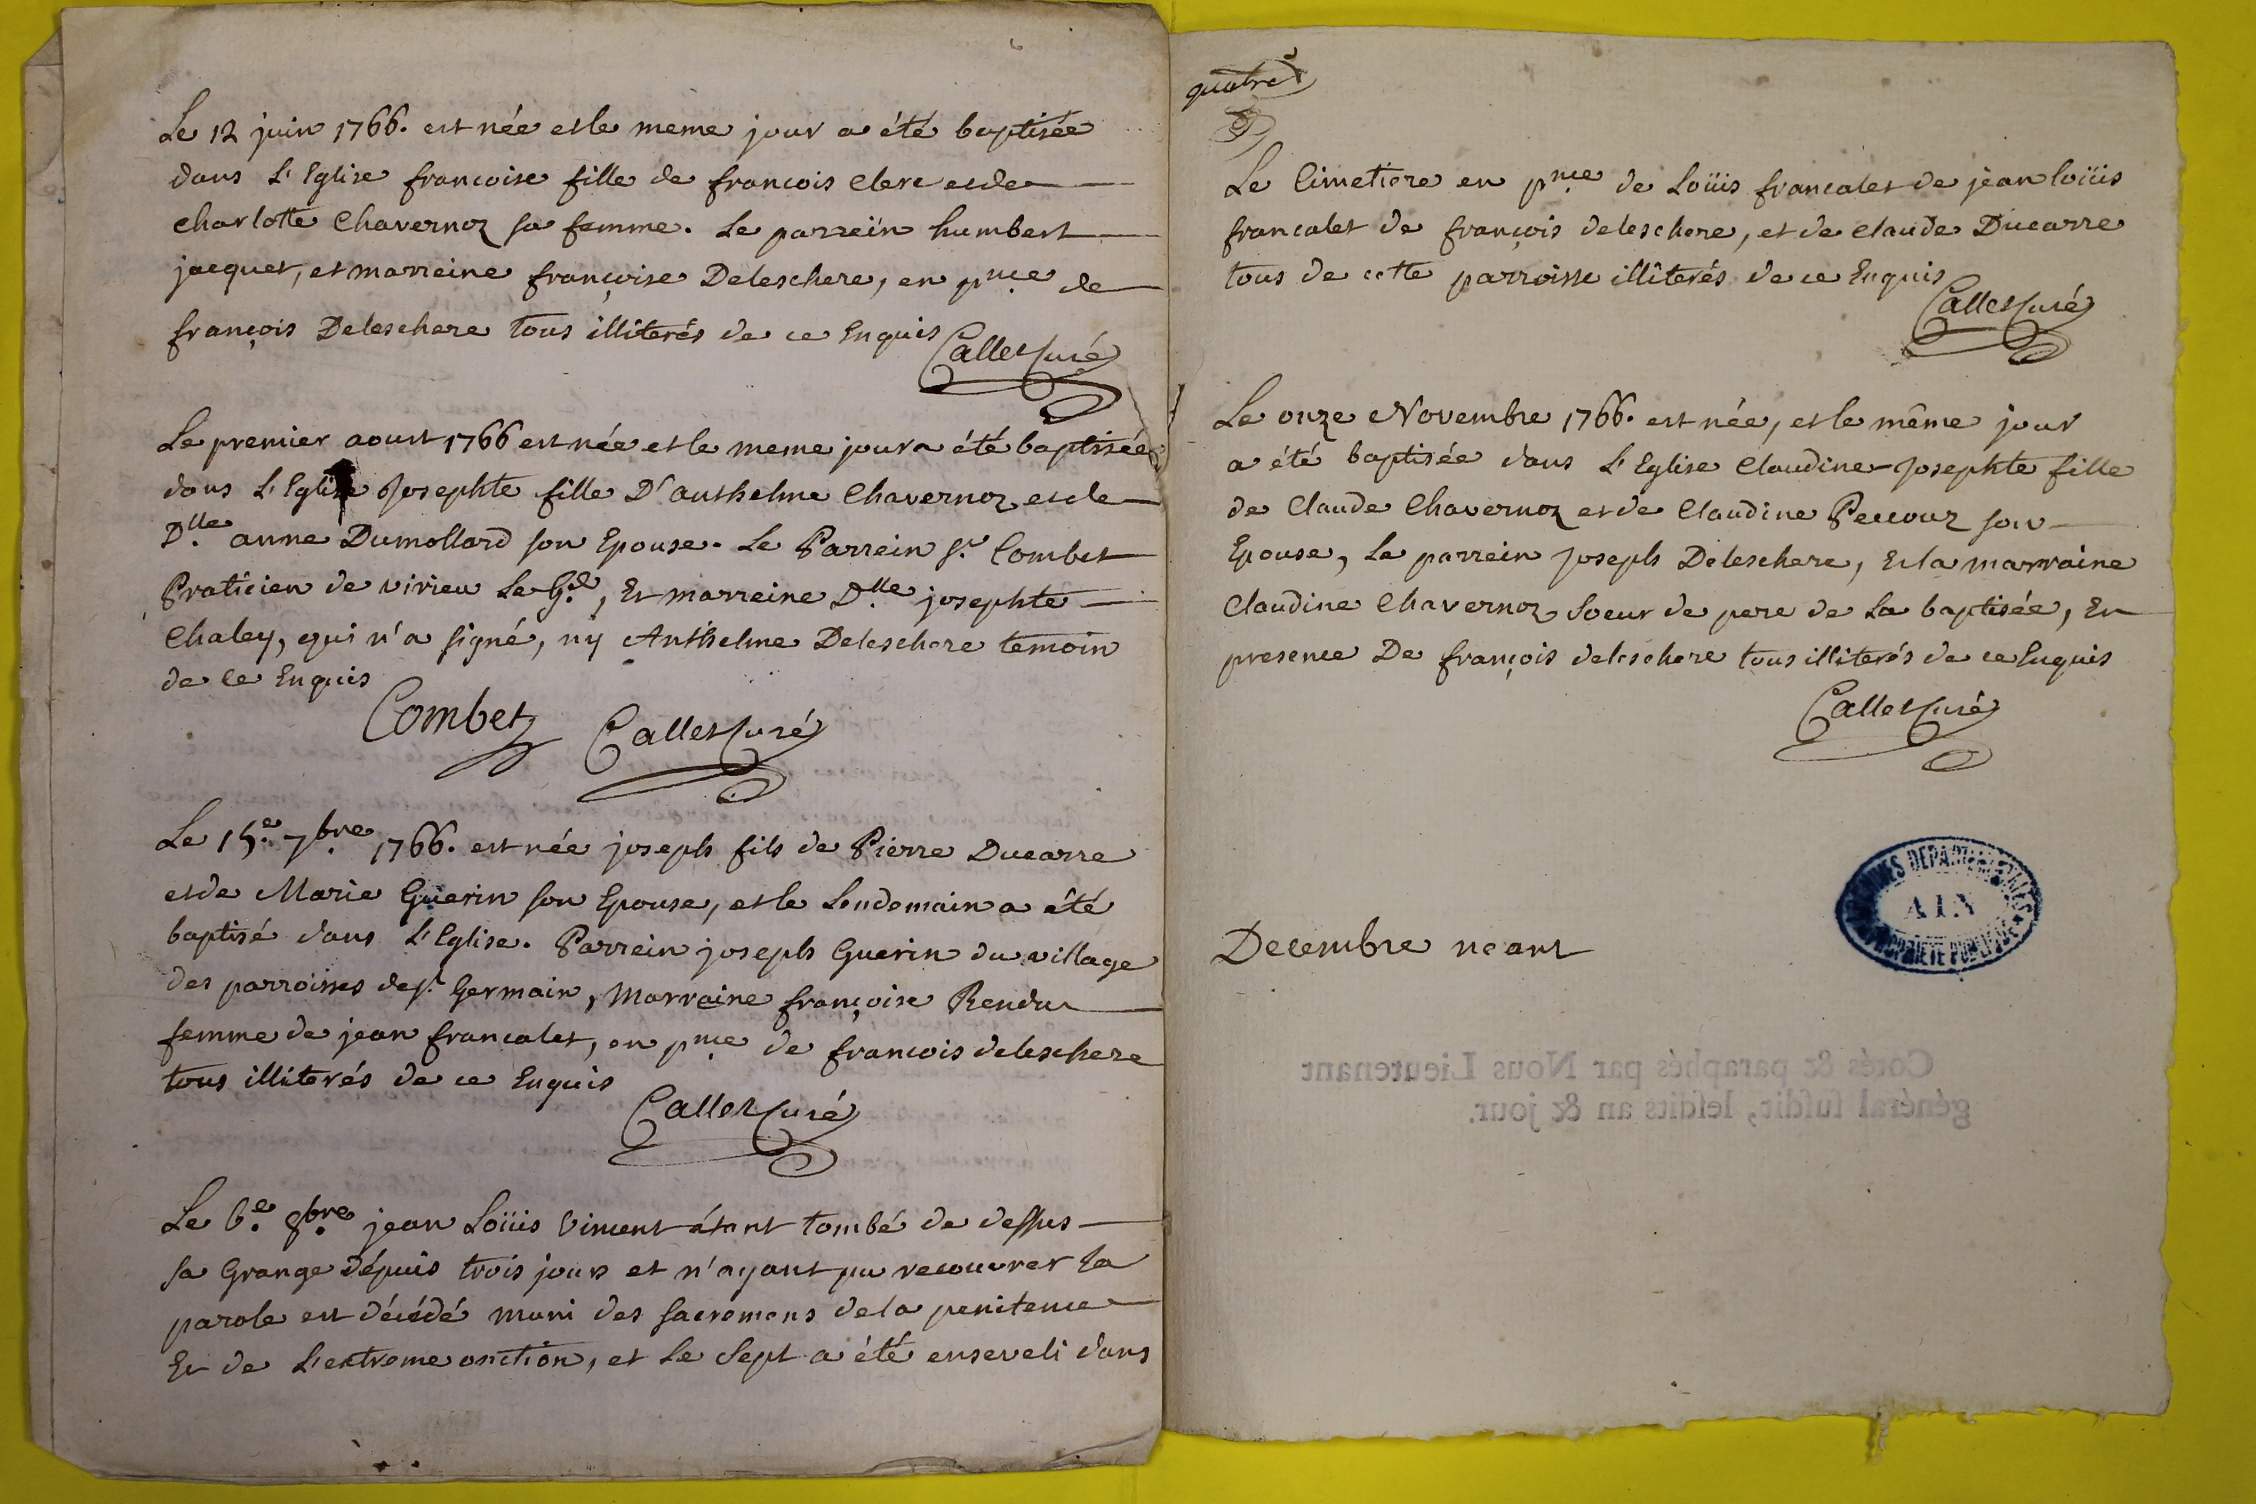 Le 12 juin 1766. est née et le meme jour a été baptisée
dans L'Eglise francoise fille de francois Clerc et de
Charlotte Chavernoz sa femme. Le parrein humbert
jacquet, et marreine françoise Deleschere, en pnce de
françois Deleschere tous illiterés de ce Enquis
Callet Curé
Le premier aoust 1766 est née et le meme jour a été baptisée
dans L'Eglise Josephte fille D'anthelme Chavernoz et de
Dlle anne Dumollard son Epouse. Le Parrein Sr. Combet
Praticien de virieu Le Gd, Et marreine Dlle josephte
Chaley, qui n'a signé, ny Anthelme Deleschere temoin
de ce Enquis
Combet Callet Curé
Le 15e. 7bre. 1766. est née joseph fils de Pierre Ducarre
et de Marie Guerin son Epouse, et le Lendemain a été
baptisé dans L'Eglise. Parrein joseph Guerin du village
des parroisses de St. Germain, Marraine françoise Rendu
femme de jean francalet, en pnce de francois deleschere
tous illiterés de ce Enquis
Callet Curé
Le 6e. 8bre. jean Loüis Vincent étant tombé de dessus
sa Grange dépuis trois jours et n'ayant pu recouvrer La
parole est décédé muni des sacremens de la penitence
Et de L'extreme onction, et Le Sept a été enseveli dans
quatre
Le Cimetiere en pnce de Loüis francalet de jean loüis
francalet de françois deleschere, et de claude Ducarre
tous de cette parroisse illiterés de ce Enquis
Callet Curé
Le onze Novembre 1766. est née, et le même jour
a été baptisée dans L'Eglise Claudine-Josephte fille
de Claude Chavernoz et de Claudine Peccouz son
Epouse, Le parrein joseph Deleschere, Et la marraine
Claudine Chavernoz Soeur de pere de La baptisée, En
presence De françois deleschere tous illiterés de ce Enquis
Callet Curé
ARCHIVES DEPARTEMENTALES
AIN
PROPRIETE PUBLIQUE
Decembre neant
Cotés & paraphés par Nous Lieutenant
général susdit, lesdits an & jour.